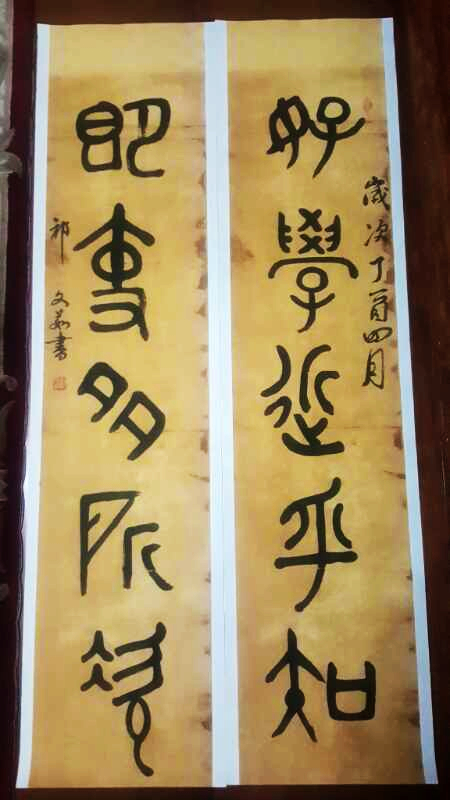 好學近乎知
歲次丁酉四月
即事多所欣
祁文茹書